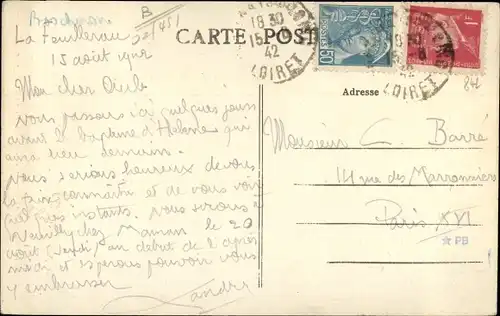 B
451
La Feuilleraie
15 août 1942
Mon cher Oncle
Nous passons ici quelques jours
avant le baptême d'Hélène qui
aura lieu demain.
Nous serions heureux de vous
la faire connaître et de vous voir
quelques instants. Nous serons à
Neuilly chez Maman le 20
août (jeudi) au début de l'après
midi et espérons pouvoir vous
y embrasser
André
CARTE POST
18 30
15
42
LOIRET
50
POSTES
1F
LOIRET
842
Adresse
Monsieur C. Barré
14 rue des Marronniers
Paris XVI
☆ PB